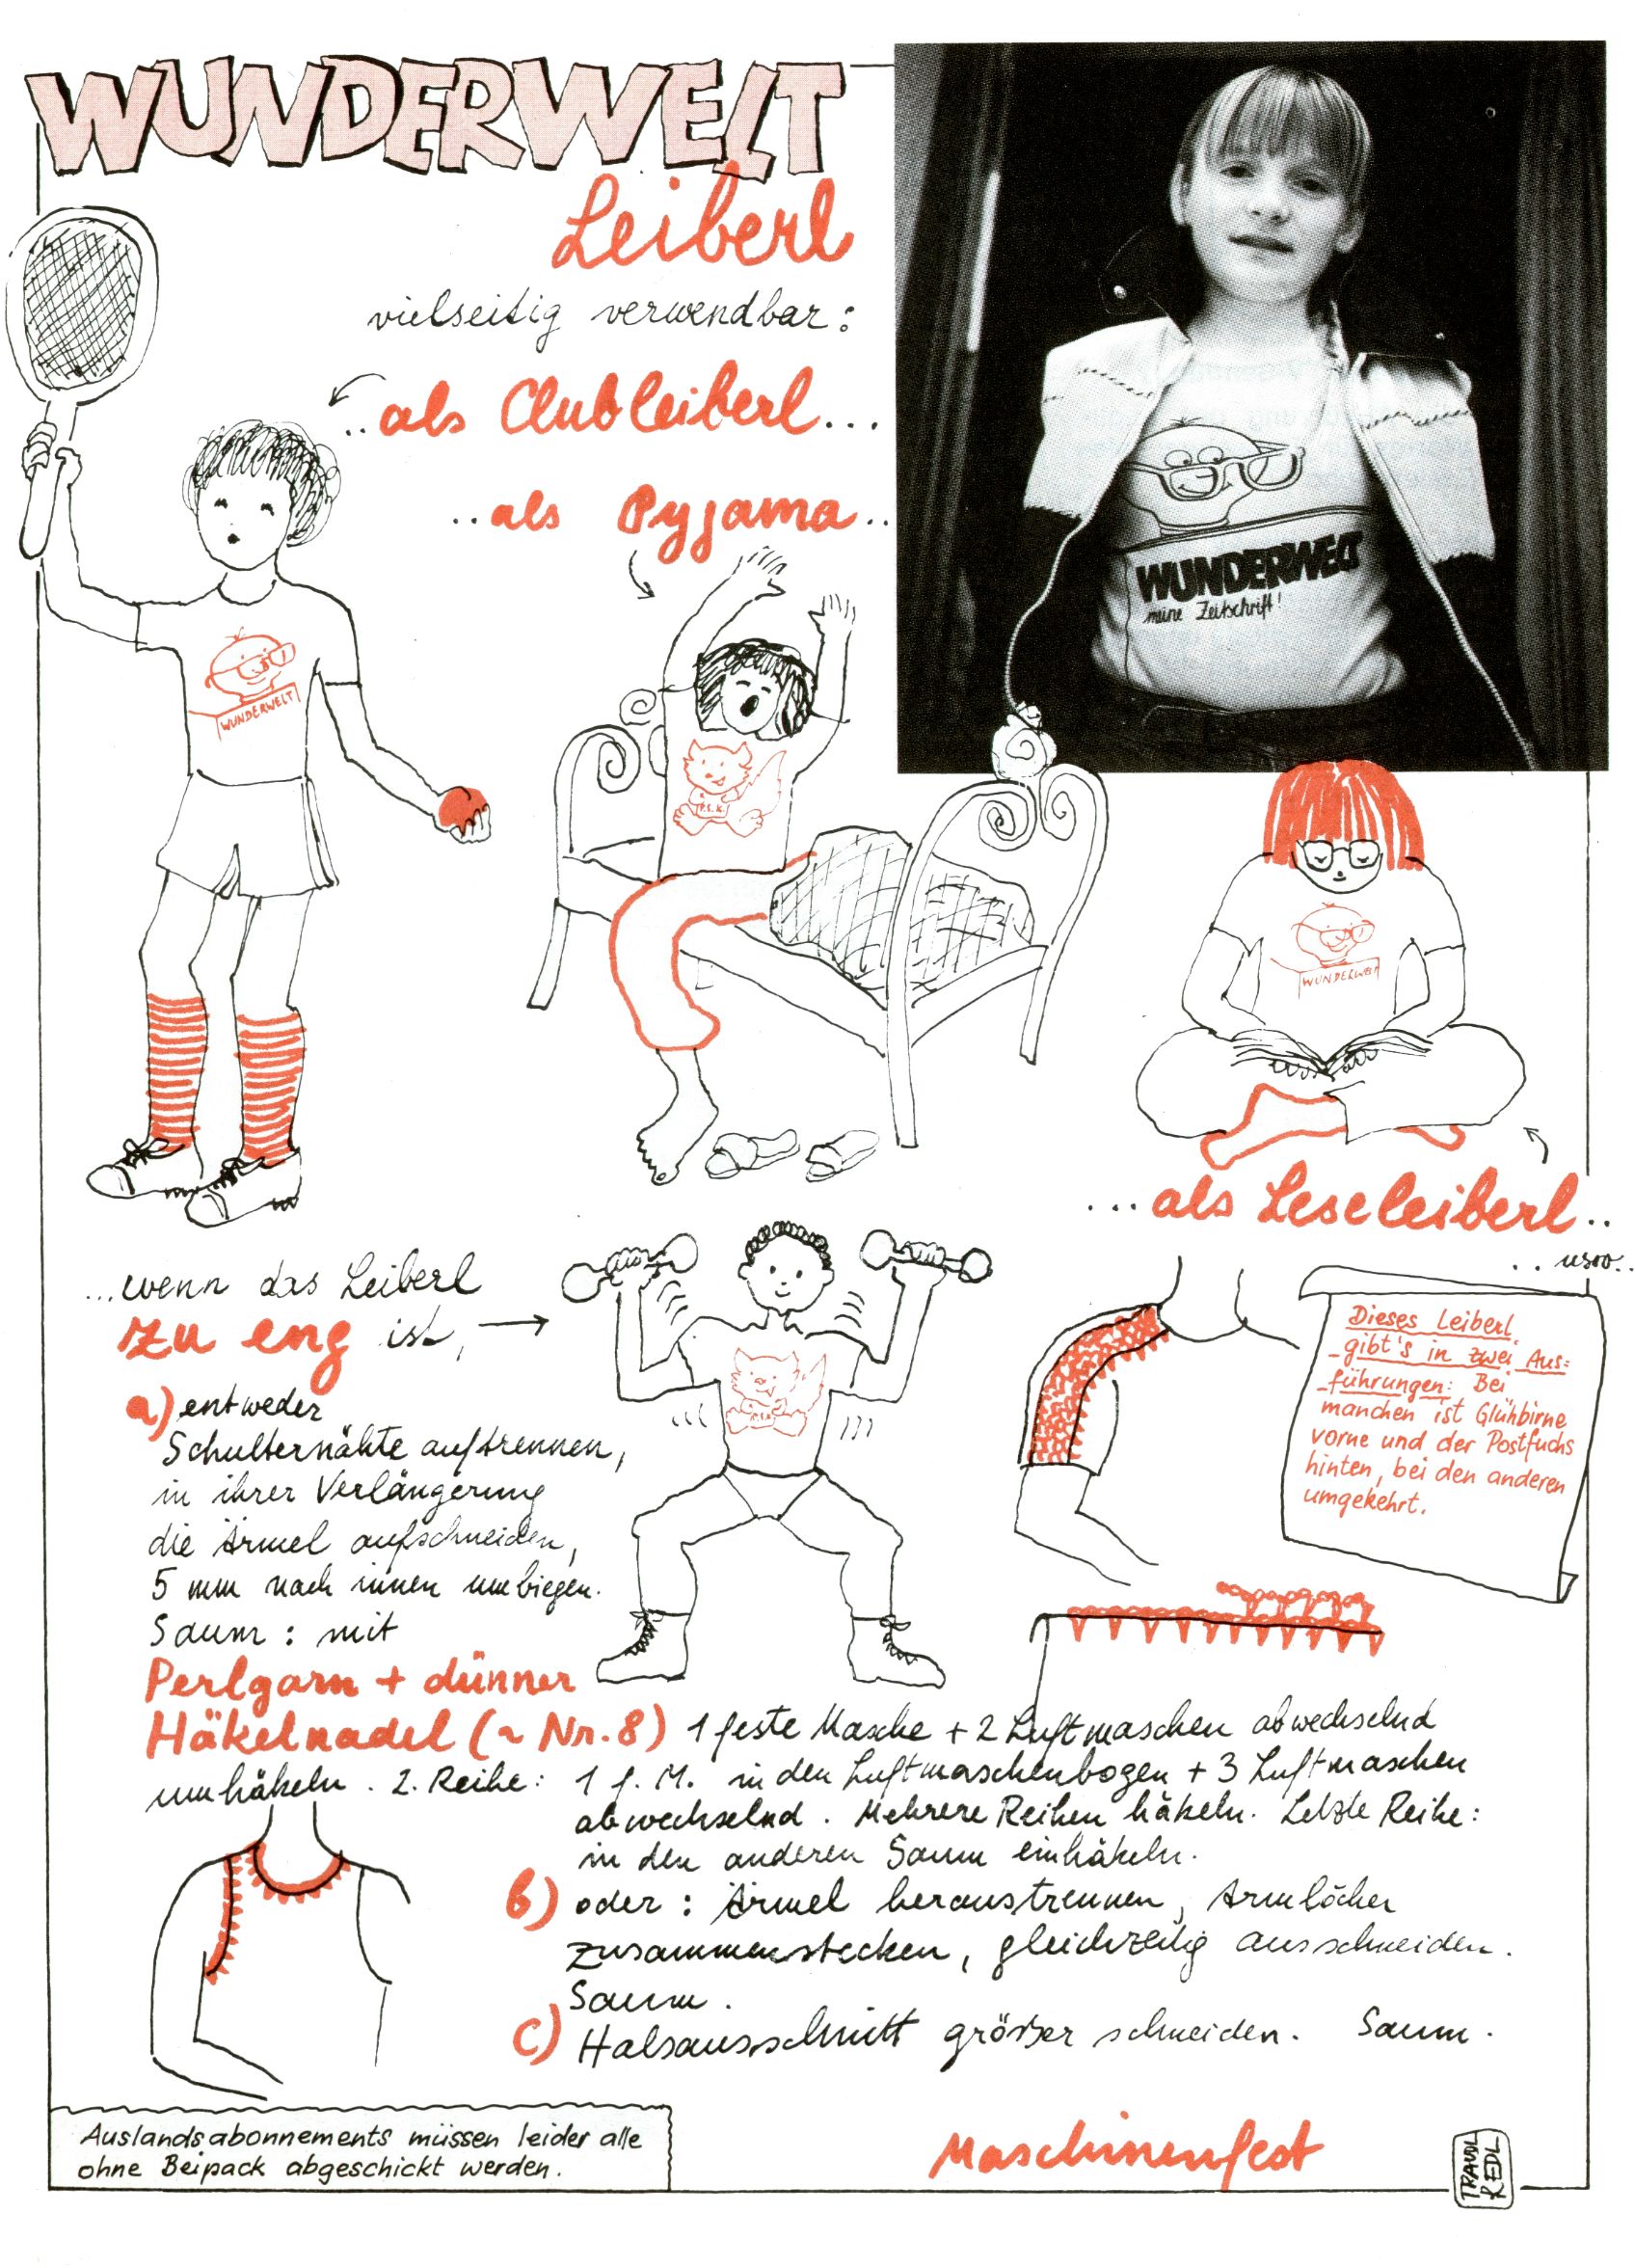 WUNDERWELT
Leiberl
vielseitig verwendbar:
..als Clubleiberl...
..als Pyjama..
WUNDERWELT
meine Zeitschrift!
WUNDERWELT
P.E.K.
WUNDERWELT
...als Leseleiberl..
..usw..
...wenn das Leiberl
zu eng ist,
a) entweder
Schulternähte auftrennen,
in ihrer Verlängerung
die Ärmel aufschneiden,
5 mm nach innen umbiegen.
Saum: mit
Perlgarn + dünner
Häkelnadel (~ Nr. 8) 1 feste Masche + 2 Luftmaschen abwechselnd
umhäkeln. 2. Reihe: 1 f. M. in den Luftmaschenbogen + 3 Luftmaschen
abwechselnd. Mehrere Reihen häkeln. Letzte Reihe:
in den anderen Saum einhäkeln.
b) oder: Ärmel heraustrennen, Armlöcher
zusammenstecken, gleichzeitig ausschneiden.
Saum.
c) Halsausschnitt größer schneiden. Saum.
Dieses Leiberl
gibt's in zwei Aus=
führungen: Bei
manchen ist Glühbirne
vorne und der Postfuchs
hinten, bei den anderen
umgekehrt.
Auslandsabonnements müssen leider alle
ohne Beipack abgeschickt werden.
Maschinenfest
TRAUDL
REDL